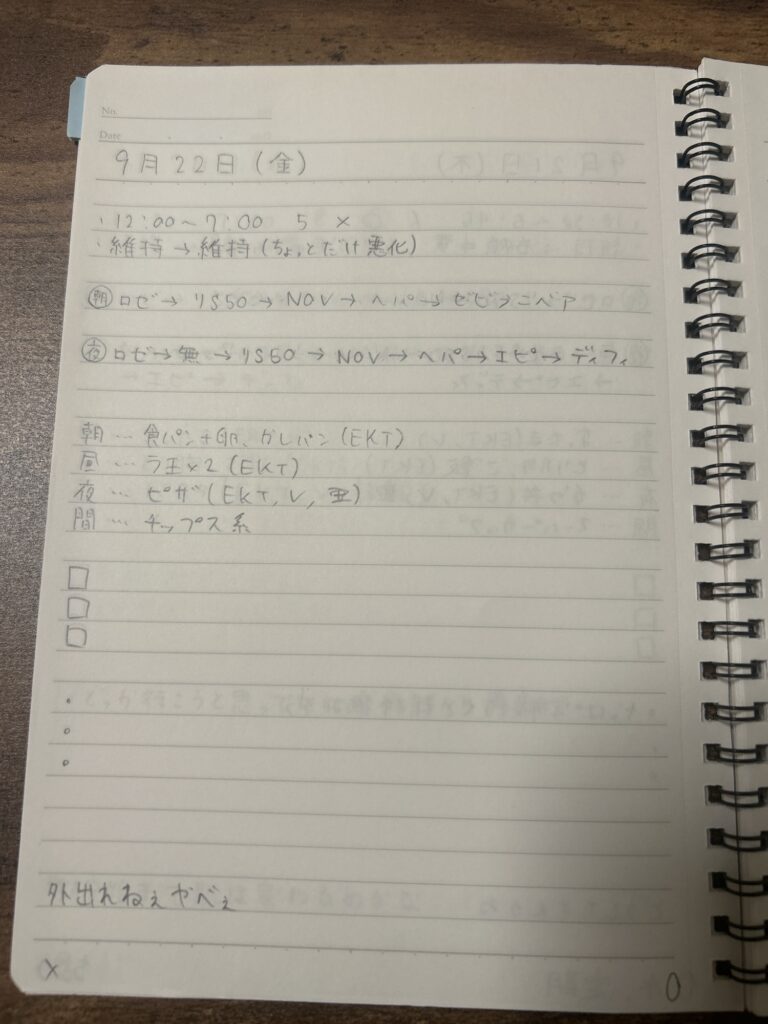 No.
Date
9月22日(金)
・12:00〜7:00 5 ×
・維持→維持(ちょっとだけ悪化)
朝 ロゼ→リS50→NOV→ヘパ→ゼビ→ニベア
夜 ロゼ→無→リS50→NOV→ヘパ→エピ→ディフィ
朝…食パン+ カレパン(EKT)
昼…ラ王×2(EKT)
夜…ピザ(EKT, V, 亜)
間…チップス系
外出れねぇヤベぇ
×
0